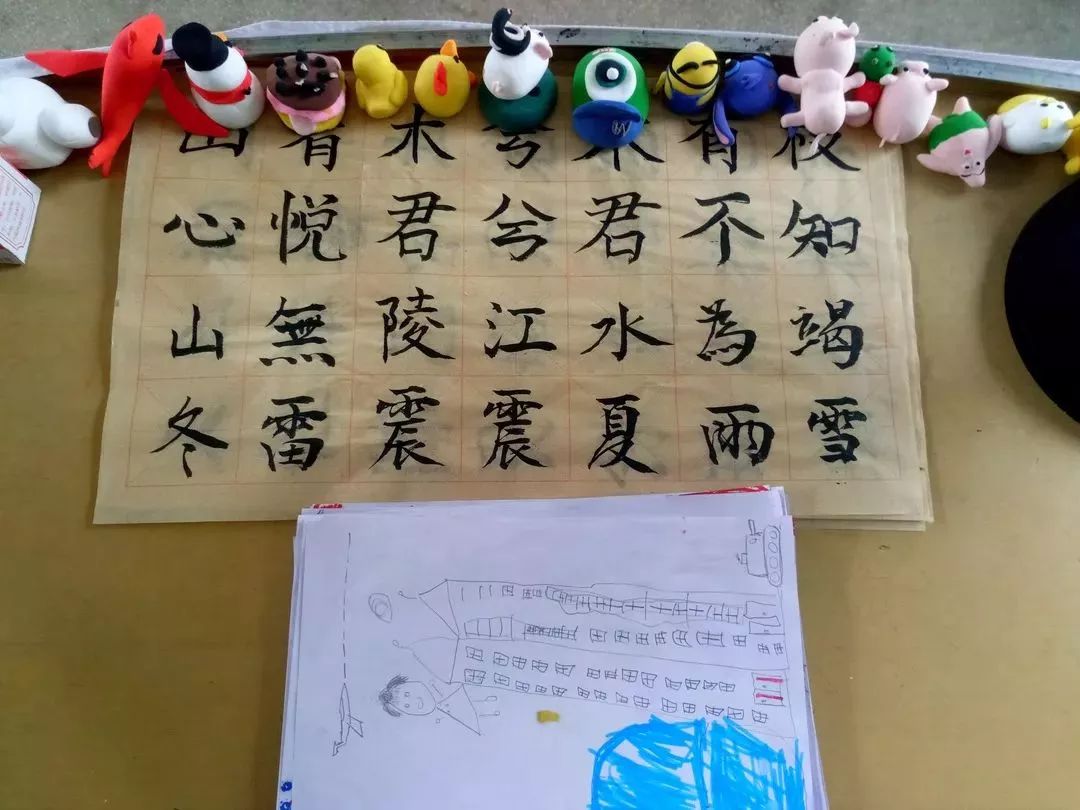 山有木兮木有枝
心悦君兮君不知
山無陵江水為竭
冬雷震震夏雨雪